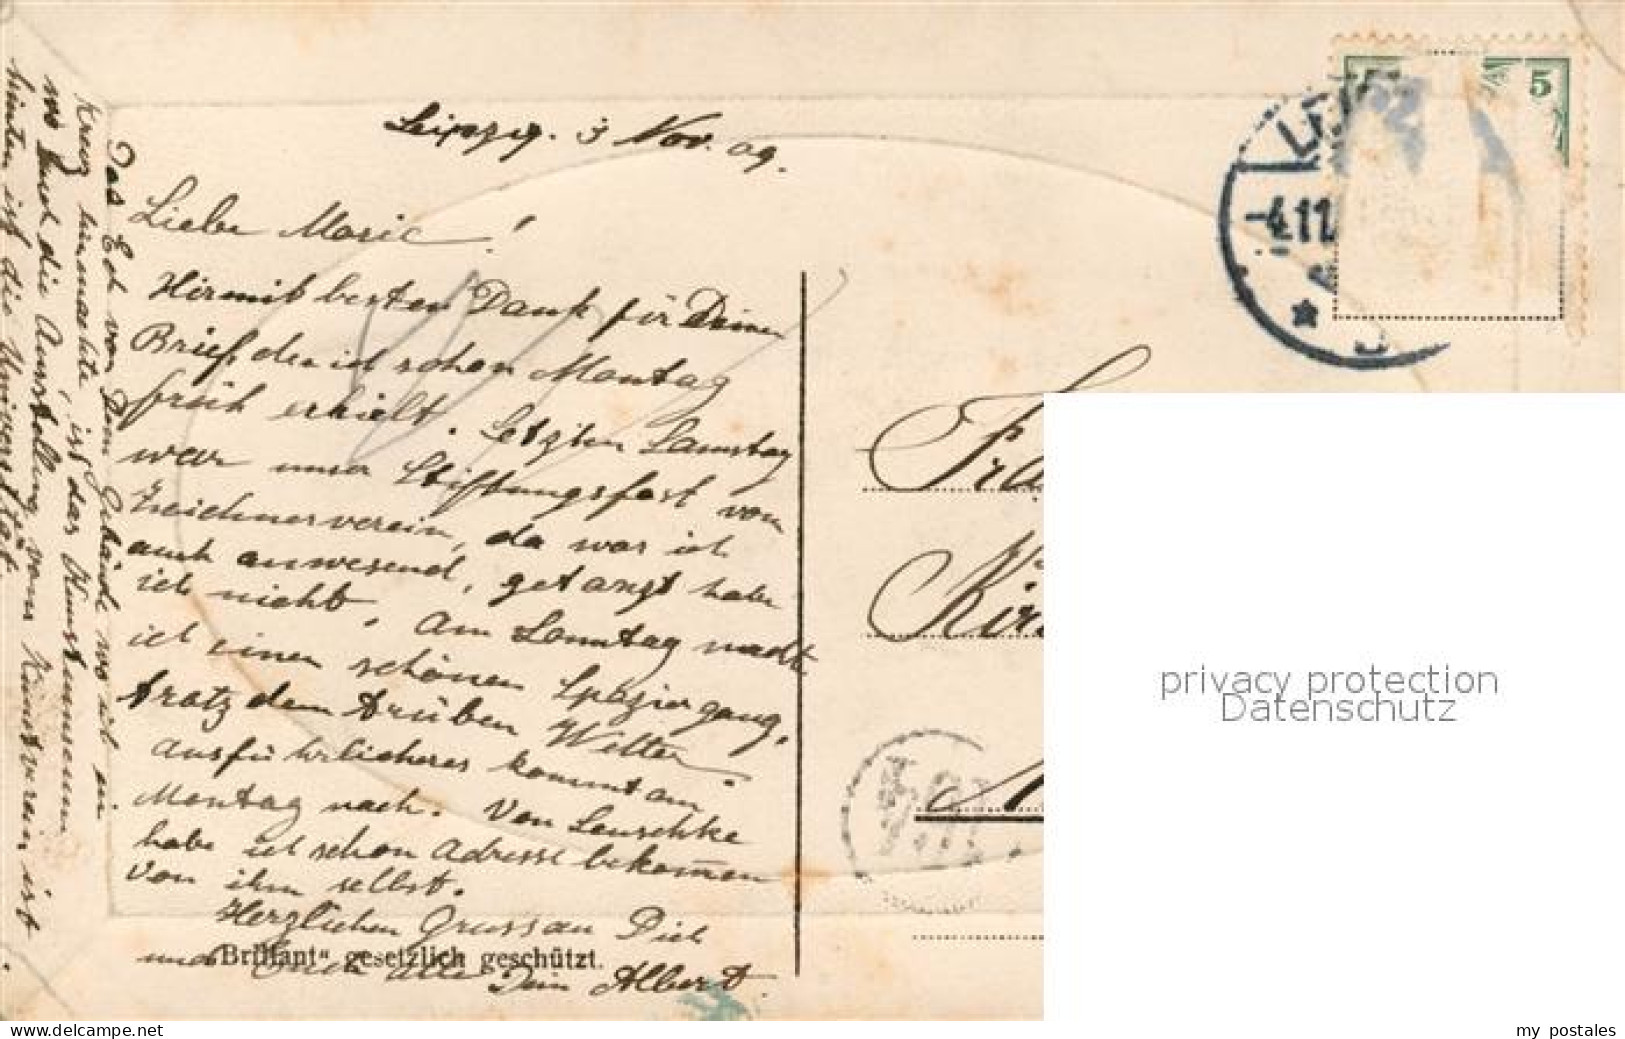 Leipzig. 3 Nov. 09.
Liebe Marie!
Hiermit besten Dank für Deinen
Brief, den ich schon Montag
früh erhielt. Letzten Samstag
war unser Stiftungsfest vom
Zeichnerverein, da war ich
auch anwesend, getanzt habe
ich nicht. Am Sonntag macht
ich einen schönen Spaziergang,
trotz dem trüben Wetter.
Ausführlicheres kommt am
Montag nach. Von Leuschke
habe ich schon Adresse bekom̅en
von ihm selbst.
Herzlichen Gruss an Dich
und Euch alle Dein Albert.
"Brillant" gesetzlich geschützt.
Das Eck von dem Gebäude wo ich ein
Kreuz hinmachte, ist das Kunstmuseum
wo auch die Ausstellung vom Kunstverein ist
hinten ist die Universität.
5
-4.11.
privacy protection
Datenschutz
my postales